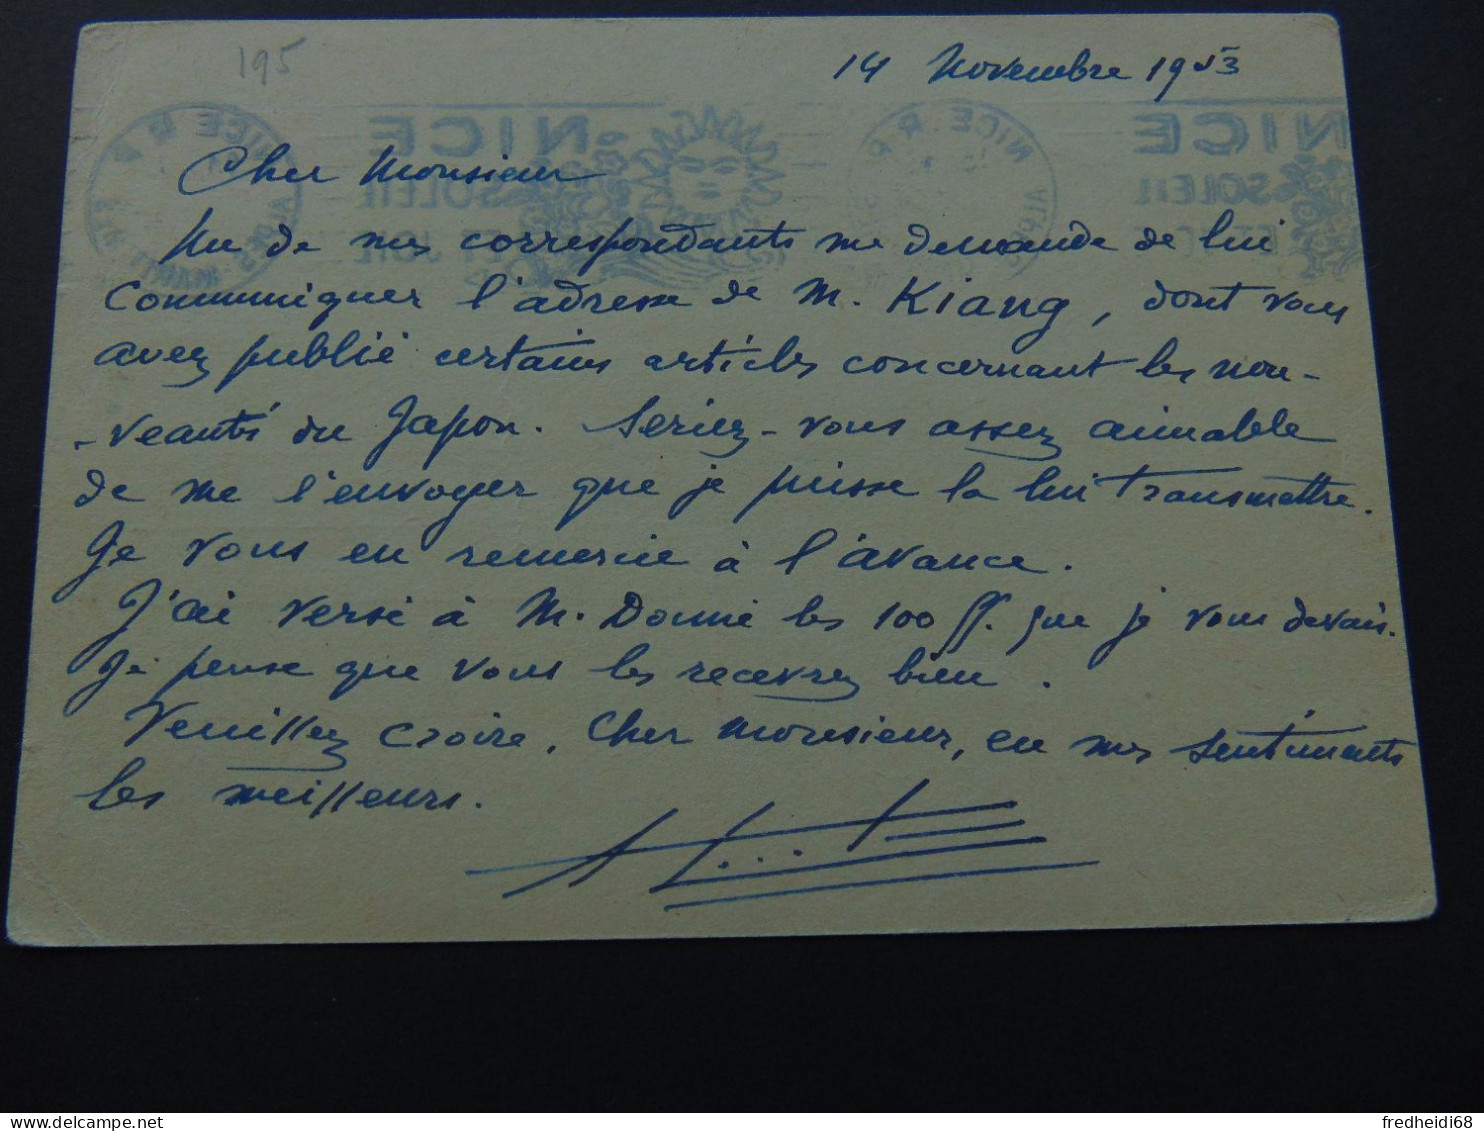 195
14 Novembre 1953
NICE
SOLEIL
ET JOIE
NICE
SOLEIL
NICE R.P.
ALPES-MARITIMES
NICE R.P.
Cher Monsieur
Un de mes correspondants me demande de lui
communiquer l'adresse de M. Kiang, dont vous
avez publié certains articles concernant les nou-
-veautés du Japon. Seriez-vous assez aimable
de me l'envoyer que je puisse la lui transmettre.
Je vous en remercie à l'avance.
J'ai versé à M. Donné les 100 ff. que je vous devais.
Je pense que vous les recevrez bien.
Veuillez croire, Cher Monsieur, en mes sentiments
les meilleurs.
fredheidi68